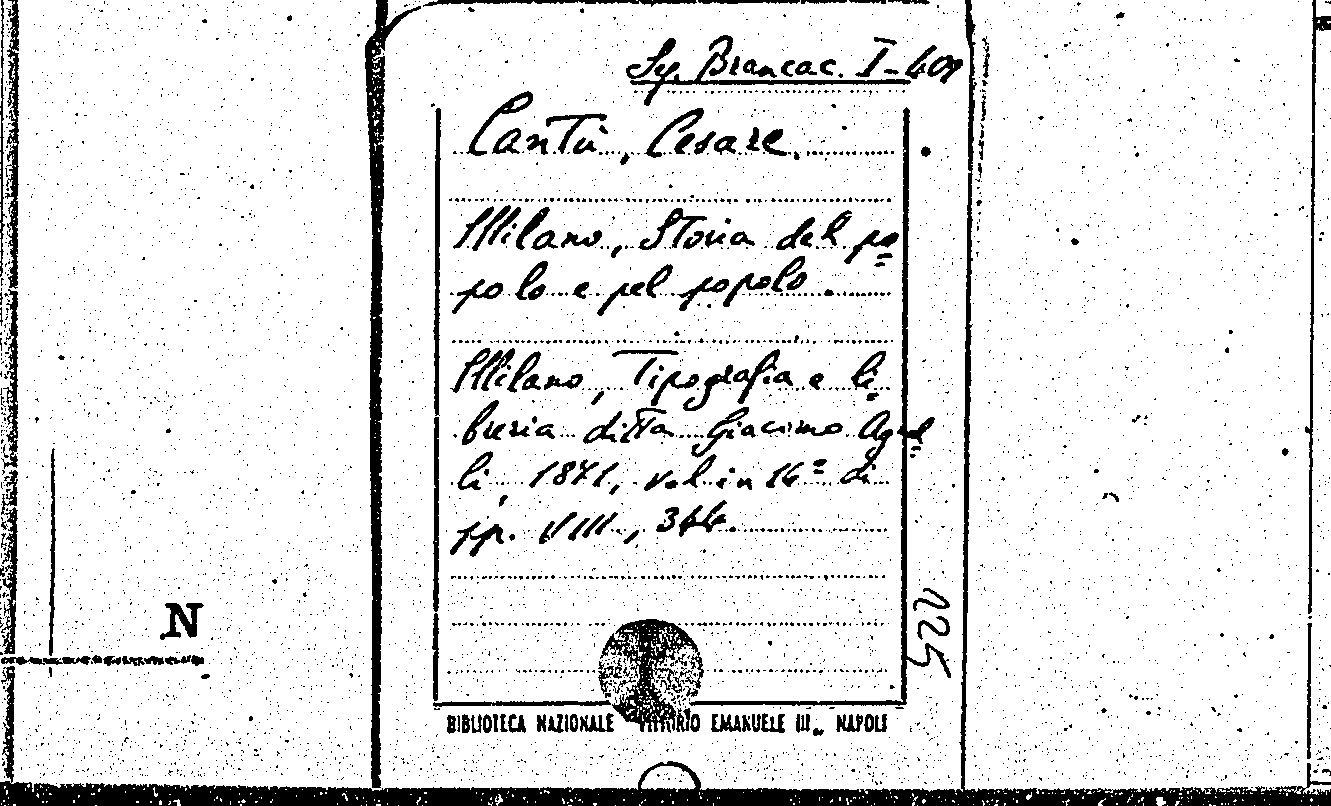 Sy. Brancac. I-409
Cantù, Cesare.
Milano, Storia del po=
polo e pel popolo.
Milano, Tipografia e li=
breria ditta Giacomo Agnel
li, 1871, vol. in 16° di
pp. VIII, 344.
225
N
BIBLIOTECA NAZIONALE VITTORIO EMANUELE III„ NAPOLI